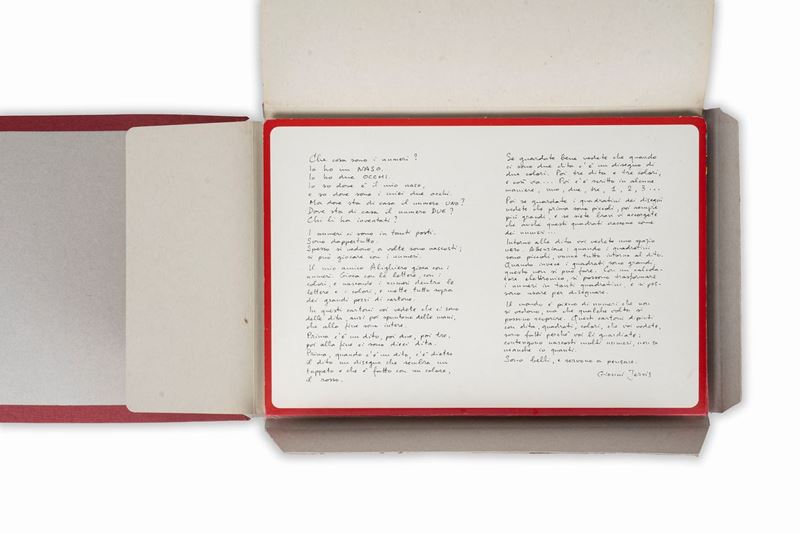 Che cosa sono i numeri?
Io ho un NASO.
Io ho due OCCHI.
Io so dove è il mio naso,
e so dove sono i miei due occhi.
Ma dove sta di casa il numero UNO?
Dove sta di casa il numero DUE?
Chi li ha inventati?
I numeri ci sono in tanti posti.
Sono dappertutto.
Spesso si vedono, a volte sono nascosti;
si può giocare con i numeri.
Il mio amico Alighiero gioca con i
numeri. Gioca con le lettere, con i
colori, e nasconde i numeri dentro le
lettere e i colori, e mette tutto sopra
dei grandi pezzi di cartone.
In questi cartoni voi vedete che ci sono
delle dita, anzi poi spuntano delle mani,
che alla fine sono intere.
Prima c'è un dito, poi due, poi tre,
poi alla fine ci sono dieci dita.
Prima, quando c'è un dito, c'è dietro
il dito un disegno che sembra un
tappeto e che è fatto con un colore,
il rosso.
Se guardate bene vedete che quando
ci sono due dita c'è un disegno di
due colori. Poi tre dita e tre colori,
e così via... Poi c'è scritto in alcune
maniere, uno, due, tre, 1, 2, 3...
Poi se guardate i quadratini dei disegni
vedete che prima sono piccoli, poi sempre
più grandi, e se siete bravi vi accorgete
che anche questi quadrati nascono come
dei numeri...
Intorno alle dita voi vedete uno spazio
vero. Attenzione: quando i quadratini
sono piccoli, vanno tutto intorno al dito.
Quando invece i quadrati sono grandi,
questo non si può fare. Con un calcola-
tore elettronico si possono trasformare
i numeri in tanti quadratini, e si pos-
sono usare per disegnare.
Il mondo è pieno di numeri che non
si vedono, ma che qualche volta si
possono scoprire. Questi cartoni dipinti
con dita, quadrati, colori, che voi vedete,
sono fatti perché voi li guardiate:
contengono nascosti molti numeri, non so
neanche io quanti.
Sono belli, e servono a pensare.
Giovanni Jervis